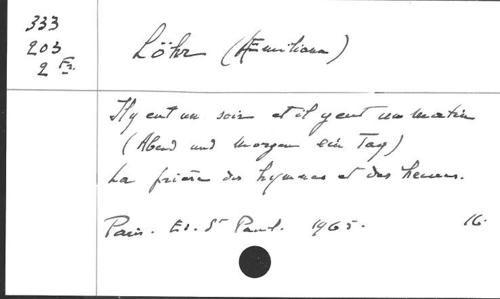 333
203
2 Fr.
Löhr (Aemiliana)
Il y eut un soir et il y eut un matin
(Abend und Morgen ein Tag)
La prière des hymnes et des heures.
Paris. Ed. St Paul. 1965. 16.